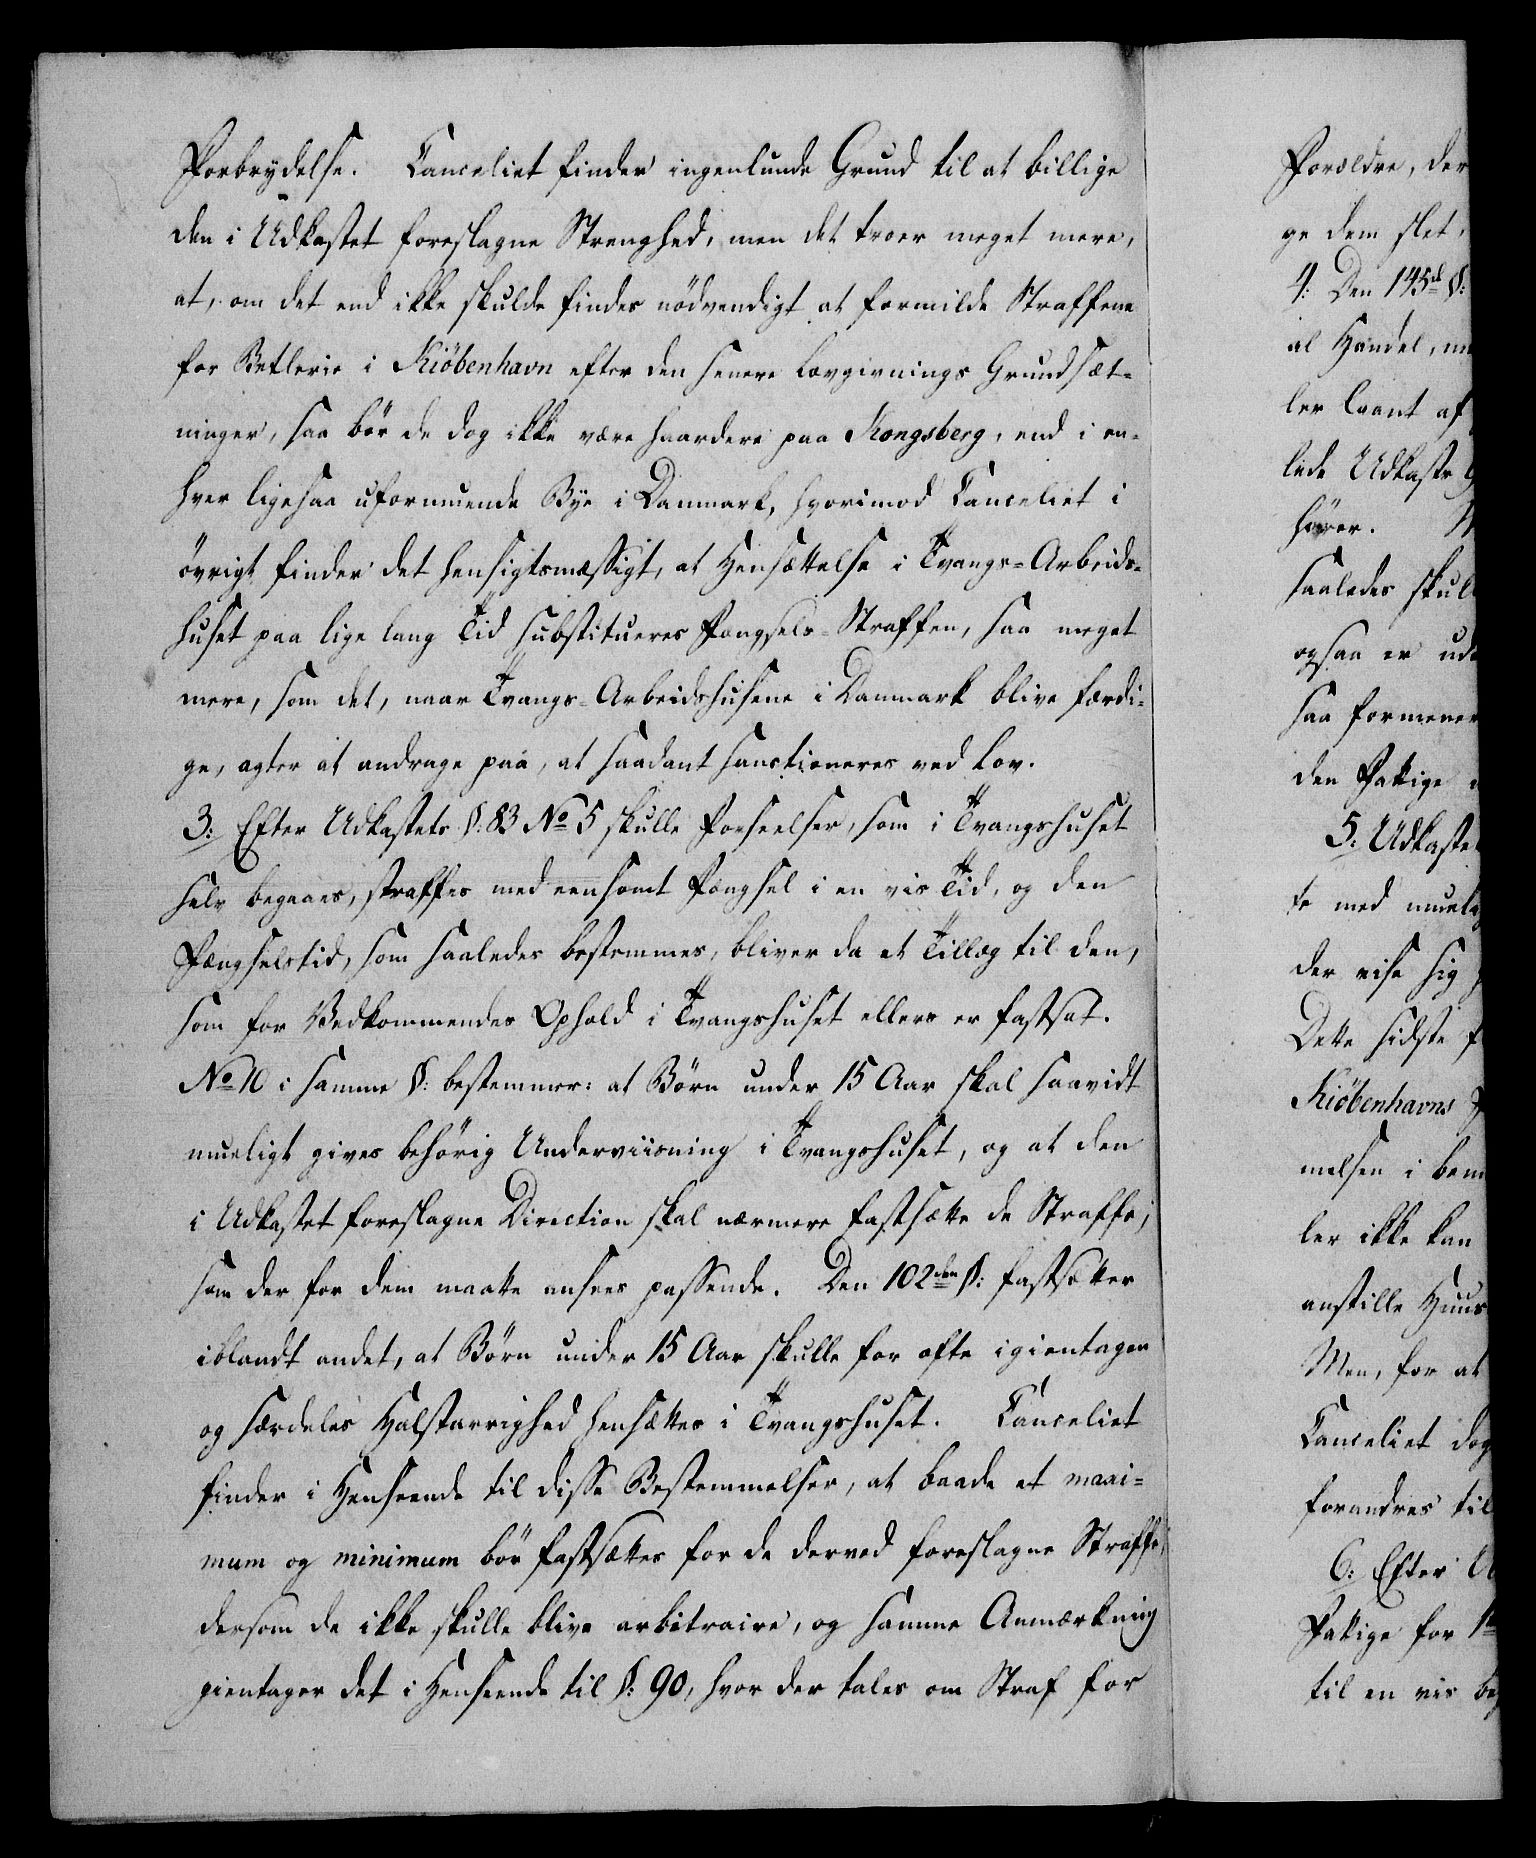 Forbrydelse. Canceliet finder ingenlunde Grund til at billige
den i Udkastet foreslagne Strenghed, men det troer meget mere,
at, om det end ikke skulde findes nödvendigt at formilde Straffene
for Betlerie i Kiöbenhavn efter den senere Lovgivnings Grundsæt-
ninger, saa bör de dog ikke være haardere paa Kongsberg, end i en-
hver ligesaa uformuende Bye i Danmark, hvorimod Canceliet i
övrigt finder det hensigtsmæssigt, at Hensættelse i Tvangs-Arbeids-
huset paa lige lang Tid substitueres Fængsels-Straffen, saa meget
mere, som det, naar Tvangs-Arbeidshusene i Danmark blive færdi-
ge, agter at andrage paa, at saadant sanctioneres ved Lov.
3: Efter Udkastets §: 83 No 5 skulle Forseelser, som i Tvangshuset
selv begaaes, straffes med eensomt Fængsel i en vis Tid, og den
Fængselstid, som saaledes bestemmes, bliver da et Tillæg til den,
som for Vedkommendes Ophold i Tvangshuset ellers er fastsat.
No 10 i samme §: bestemmer: at Börn under 15 Aar skal saavidt
mueligt gives behörig Underviisning i Tvangshuset, og at den
i Udkastet foreslagne Direction skal nærmere fastsætte de Straffe,
som der for dem maatte ansees passende. Den 102den §: fastsætter
iblandt andet, at Börn under 15 Aar skulle for ofte igientagen
og særdeles Halstarrighed hensættes i Tvangshuset. Canceliet
finder i Henseende til disse Bestemmelser, at baade et maxi-
mum og minimum bör fastsættes for de derved foreslagne Straffe,
dersom de ikke skulle blive arbitraire, og samme Anmærkning
gientager det i Henseende til §: 90, hvor der tales om Straf for
Forældre, der
ge dem slet,
4: Den 145de §:
al Handel,
ler laant af
lede Udkast
hörer.
saaledes skul
ogsaa er ud
saa formener
den Fattige
5: Udkastet
te med
der vise sig
Dette sidste
Kiöbenhavns
melsen i bem
ler ikke kan
anstille Huus
Men, for at
Canceliet dog
forandres til
6: Efter
Fattige for
til en vis